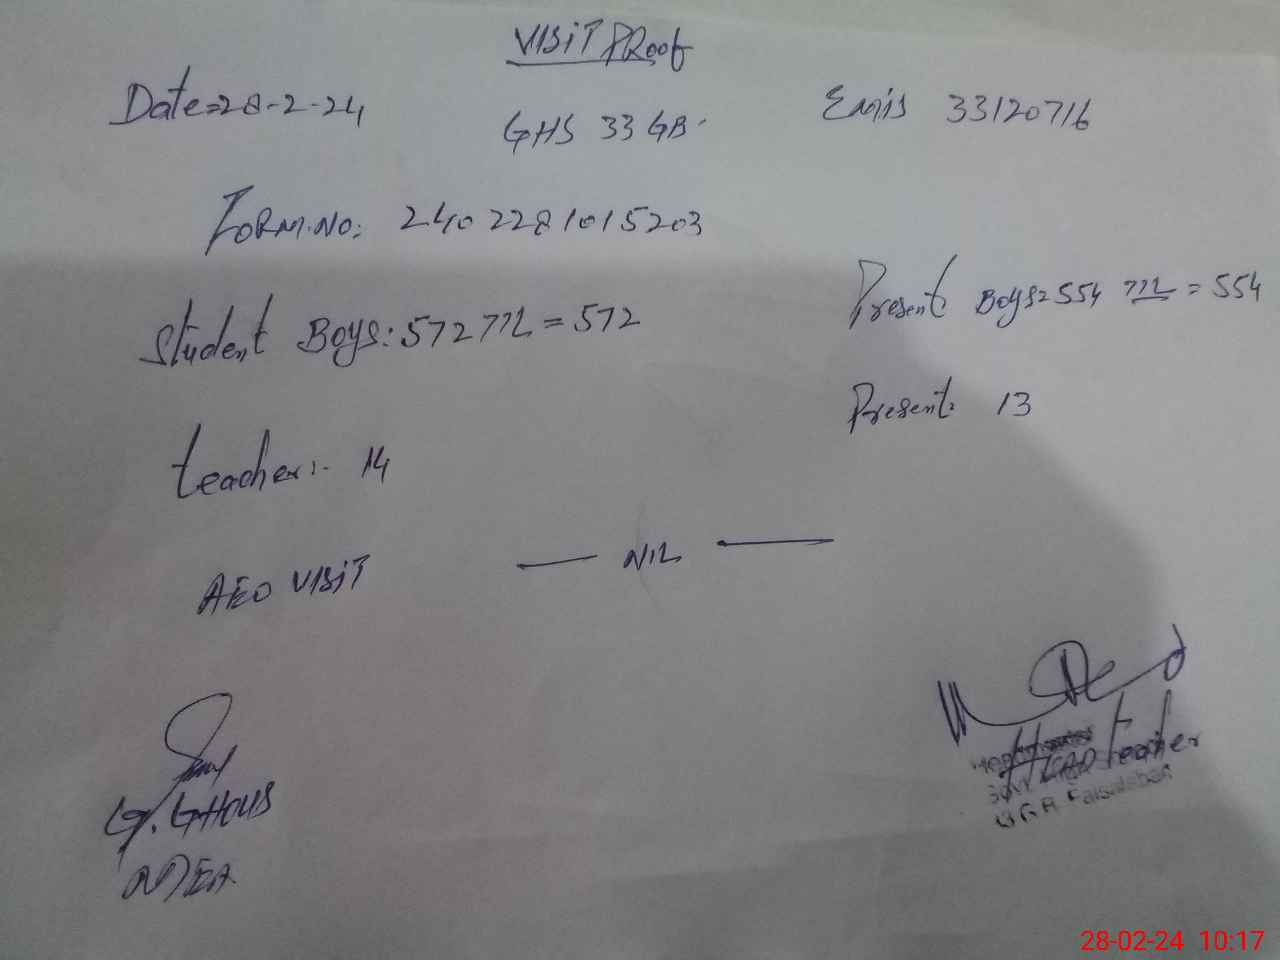 VISIT PRoof
Date=28-2-24
GHS 33 GB.
Emis 33120716
FORM.NO: 2402281015203
Student Boys: 572 = 572
Present: Boys=554 = 554
teacher:- 14
Present: 13
AEO VISIT — NIL —
G. GHOUS
MEA
HEAD teacher
Faisalabad
28-02-24 10:17